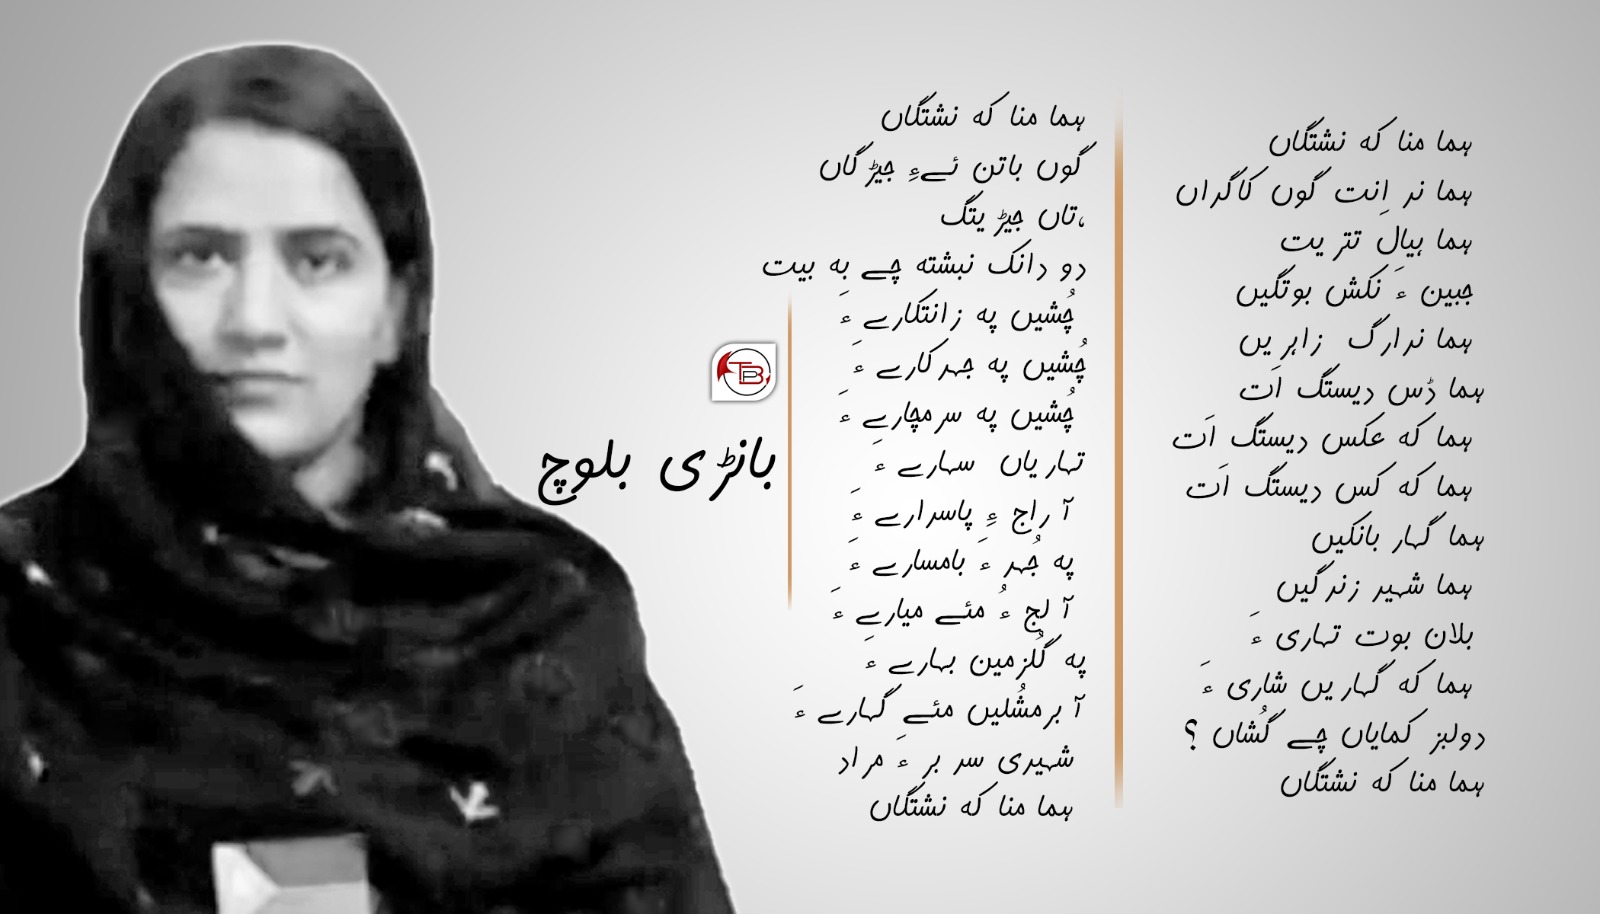 ہما منا کہ نشتگاں
ہما نر اِنت گوں کاگراں
ہما ہیالَ تتریت
جبین ءَ نکش بوتگیں
ہما نرارگ زاہریں
ہما ڈس دیستگ اَت
ہما کہ عکس دیستگ اَت
ہما کہ کس دیستگ اَت
ہما گہار بانکیں
ہما شہیر زنرگیں
بلان بوت تہاری ءَ
ہما کہ گہاریں شاری ءَ
دولبز کمایاں چے گُشاں ؟
ہما منا کہ نشتگاں
ہما منا کہ نشتگاں
گوں باتن ئےءِ جیڑگاں
،تاں جیڑیتگ
دو دانک نبشتہ چے بہ بیت
چُشیں پہ زانتکارے ءَ
چُشیں پہ جہرکارے ءَ
چُشیں پہ سرمچارے ءَ
تہاریاں سہارے ءَ
آ راج ءِ پاسدارے ءَ
پہ جُہر ءَ بامسارے ءَ
آ لج ءُ مئے میارے ءَ
پہ گلزمین بہارے ءَ
آ برمشُلیں مئے گہارے ءَ
شہیری سر بر ءَ مراد
ہما منا کہ نشتگاں
TBP
بانڑی بلوچ